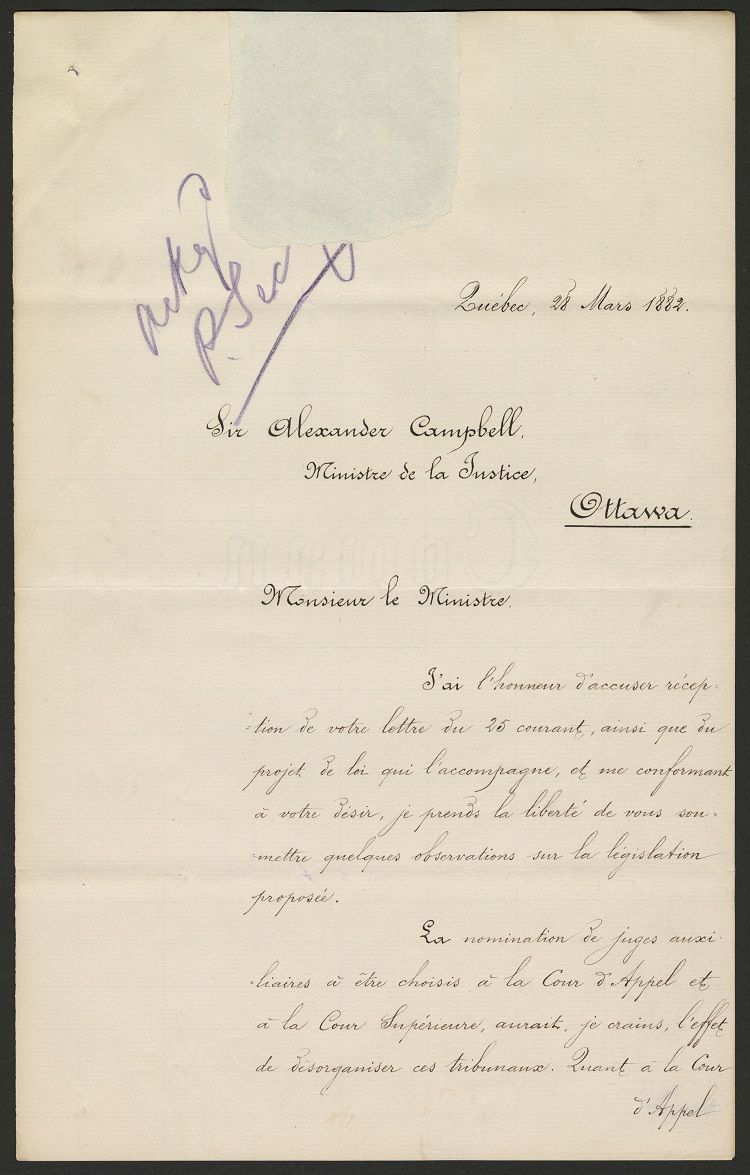 P. Sec
Québec, 28 Mars 1882.
Sir Alexander Campbell,
Ministre de la Justice,
Ottawa.
Monsieur le Ministre,
J'ai l'honneur d'accuser récep=
=tion de votre lettre du 25 courant, ainsi que du
projet de loi qui l'accompagne, et me conformant
à votre désir, je prends la liberté de vous sou-
-mettre quelques observations sur la législation
proposée.
La nomination de juges auxi-
-liaires à être choisis à la Cour d'Appel et
à la Cour Supérieure, aurait, je crains, l'effet
de désorganiser ces tribunaux. Quant à la Cour
d'Appel